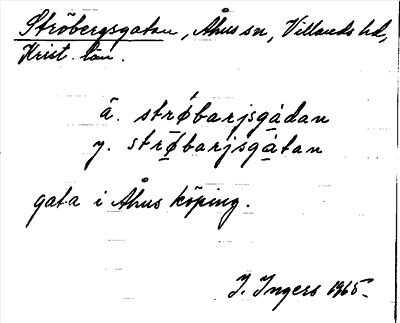 Ströbergsgatan, Åhus sn, Villands hd,
Krist. län.
ä. strǿbarjsgádan
y. strø̄barjsgātan
gata i Åhus köping.
I. Ingers 1965.